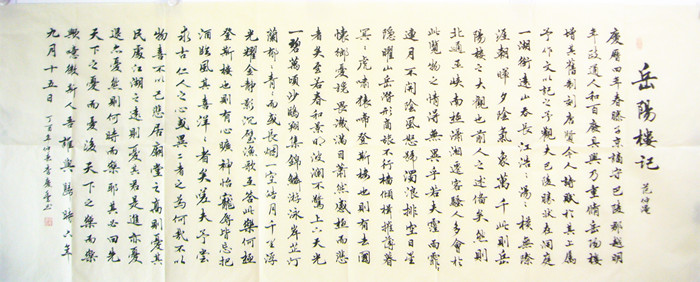 岳陽樓記
范仲淹
慶曆四年春滕子京謫守巴陵郡越明
年政通人和百廢具興乃重修岳陽樓
增其舊制刻唐賢今人詩賦於其上屬
予作文以記之予觀夫巴陵勝狀在洞庭
一湖銜遠山吞長江浩浩湯湯橫無際
涯朝暉夕陰氣象萬千此則岳
陽樓之大觀也前人之述備矣然則
北通巫峽南極瀟湘遷客騷人多會於
此覽物之情得無異乎若夫霪雨霏霏
連月不開陰風怒號濁浪排空日星
隱曜山岳潛形商旅不行檣傾楫摧薄暮
冥冥虎嘯猿啼登斯樓也則有去國
懷鄉憂讒畏譏滿目蕭然感極而悲
者矣至若春和景明波瀾不驚上下天光
一碧萬頃沙鷗翔集錦鱗游泳岸芷汀
蘭郁郁青青而或長煙一空皓月千里浮
光耀金靜影沉璧漁歌互答此樂何極
登斯樓也則有心曠神怡寵辱皆忘把
酒臨風其喜洋洋者矣嗟夫予嘗
求古仁人之心或異二者之為何哉不以
物喜不以己悲居廟堂之高則憂其
民處江湖之遠則憂其君是進亦憂
退亦憂然則何時而樂耶其必曰先
天下之憂而憂後天下之樂而樂
歟噫微斯人吾誰與歸時六年
九月十五日 丁酉年仲冬